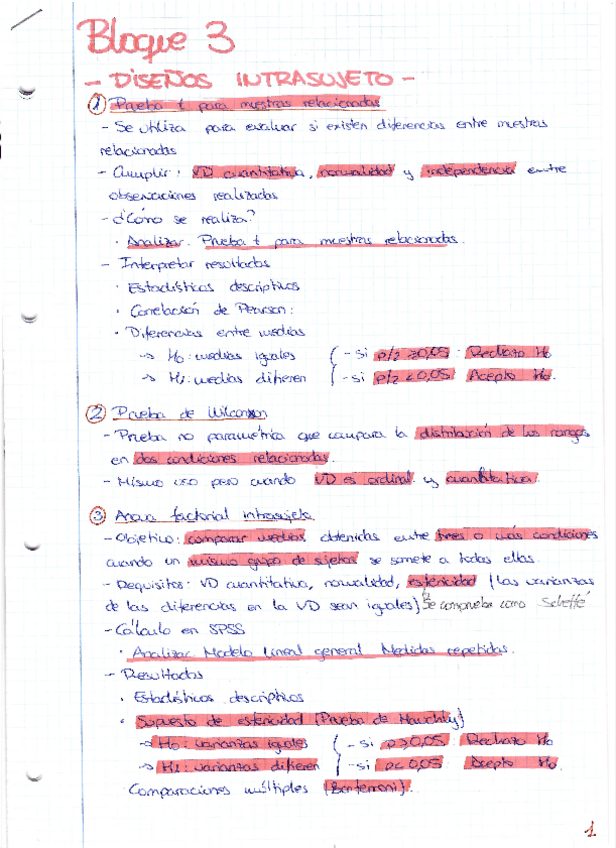 Bloque 3
- DISEÑOS INTRASUJETO -
① Prueba t para muestras relacionadas
- Se utiliza para evaluar si existen diferencias entre muestras
relacionadas
- Cumplir: VD cuantitativa, normalidad y independencia entre
observaciones realizadas
- ¿Cómo se realiza?
· Analizar. Prueba t para muestras relacionadas.
- Interpretar resultados
· Estadísticos descriptivos
· Correlación de Pearson:
· Diferencias entre medias
→ H0: medias iguales { - si p/2 ≥0,05: Rechazo H0
→ H1: medias difieren { - si p/2 <0,05: Acepto H0.
② Prueba de Wilcoxon
- Prueba no paramétrica que compara la distribución de los rangos
en dos condiciones relacionadas.
- Mismo uso pero cuando VD es ordinal y cuantitativa.
③ Anova factorial intrasujeto
- Objetivo: comparar medias obtenidas entre tres o más condiciones
cuando un mismo grupo de sujetos se somete a todas ellas.
- Requisitos: VD cuantitativa, normalidad, esfericidad (las varianzas
de las diferencias en la VD sean iguales) Se comprueba como Scheffé
- Cálculo en SPSS
· Analizar. Modelo lineal general. Medidas repetidas.
- Resultados
· Estadísticos descriptivos
· Supuesto de esfericidad (Prueba de Mauchly)
→ H0: varianzas iguales { - si p>0,05: Rechazo H0
→ H1: varianzas difieren { - si p<0,05: Acepto H0.
Comparaciones múltiples (Bonferroni).
1